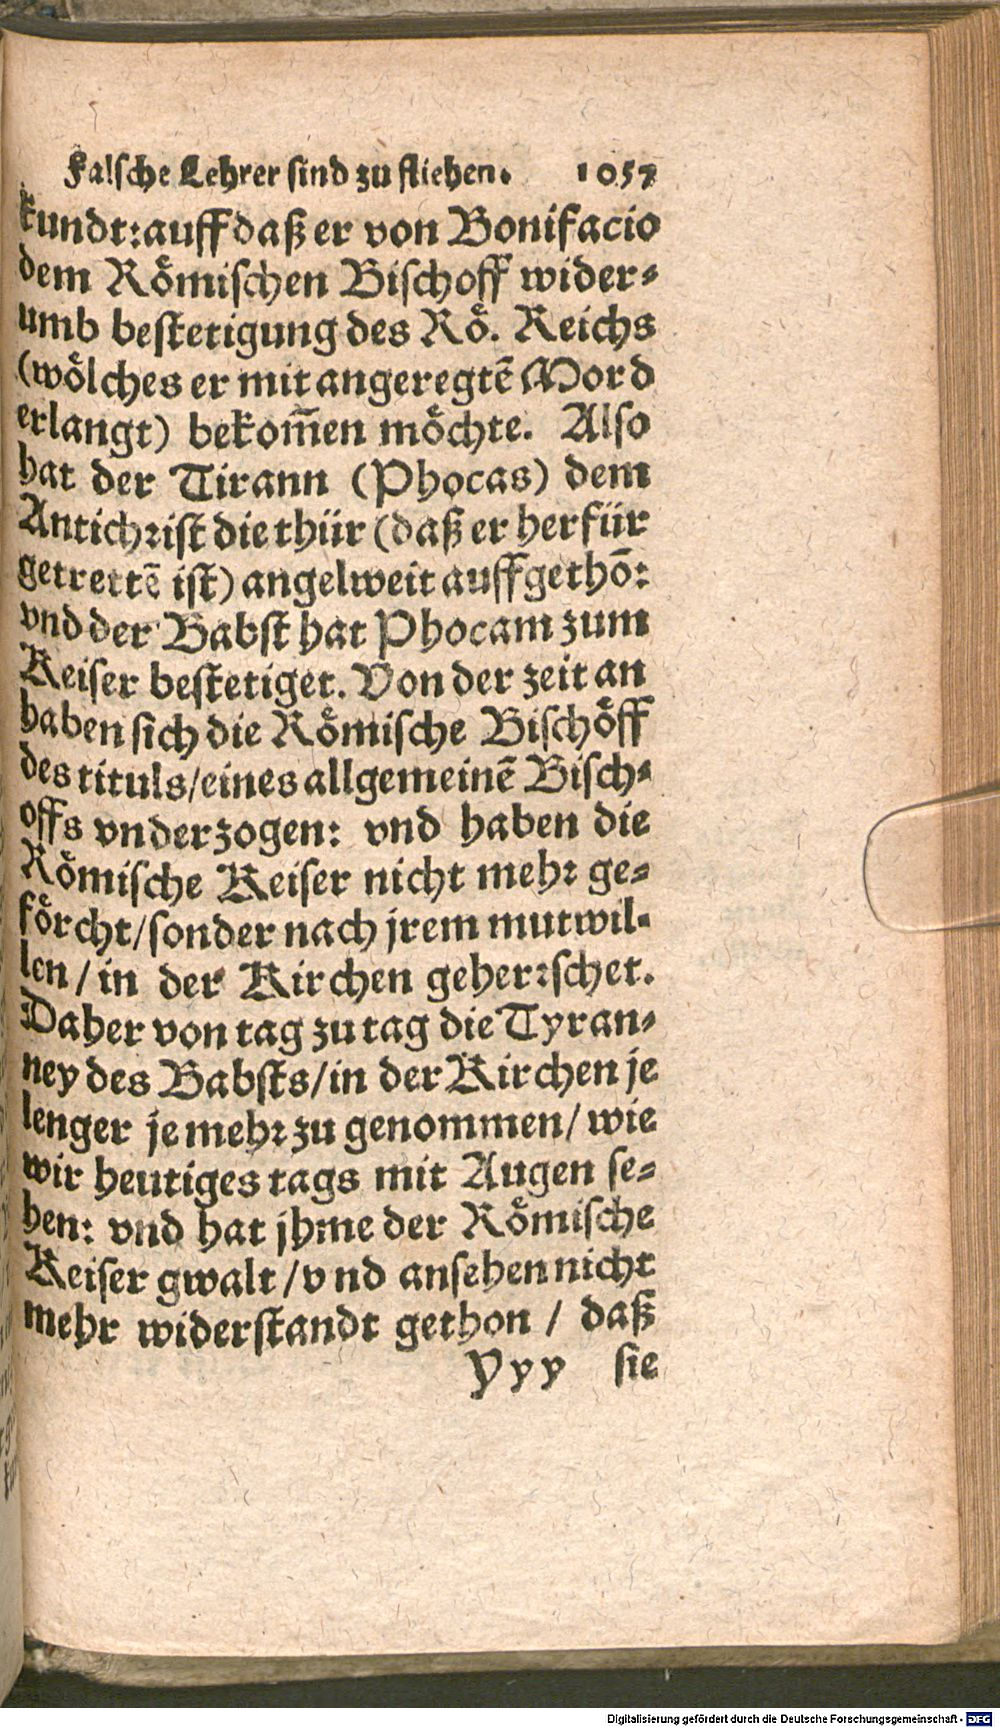 Falsche Lehrer sind zu fliehen. 1057
kundt: auff daß er von Bonifacio
dem Roͤmischen Bischoff wider⸗
umb bestetigung des Roͤ. Reichs
(woͤlches er mit angeregtẽ Mord
erlangt) bekom̃en moͤchte. Also
hat der Tirann (Phocas) dem
Antichrist die thür (daß er herfür
getrettẽ ist) angelweit auffgethõ:
vnd der Babst hat Phocam zum
Keiser bestetiget. Von der zeit an
haben sich die Roͤmische Bischoͤff
des tituls/eines allgemeinẽ Bisch⸗
offs vnderzogen: vnd haben die
Roͤmische Keiser nicht mehr ge⸗
foͤrcht/sonder nach jrem mutwil⸗
len/in der Kirchen geherrschet.
Daher von tag zu tag die Tyran⸗
ney des Babsts/in der Kirchen je
lenger je mehr zu genommen/wie
wir heutiges tags mit Augen se⸗
hen: vnd hat jhme der Roͤmische
Keiser gwalt/vnd ansehen nicht
mehr widerstandt gethon/ daß
Yyy sie
Digitalisierung gefördert durch die Deutsche Forschungsgemeinschaft - DFG